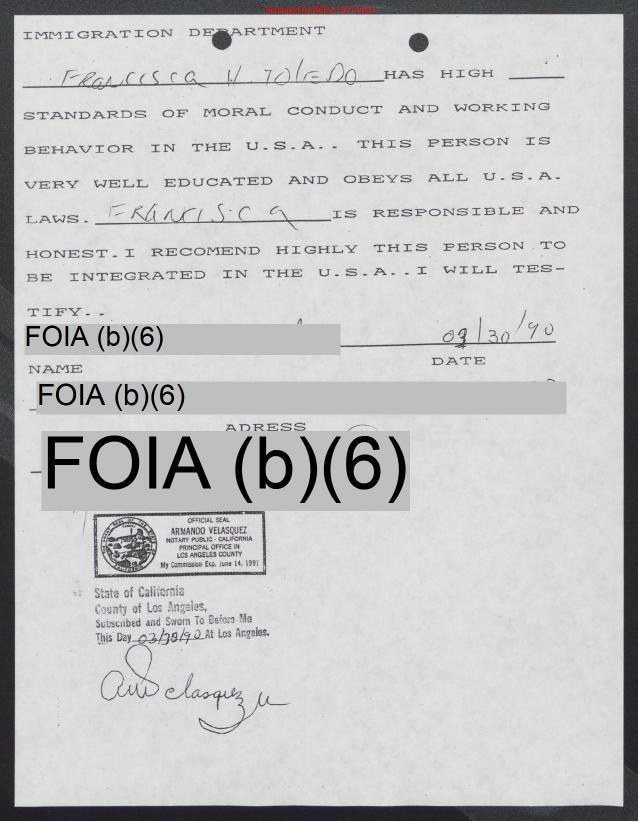 IMMIGRATION DEPARTMENT
FRANCISCA H TOLEDO HAS HIGH
STANDARDS OF MORAL CONDUCT AND WORKING
BEHAVIOR IN THE U.S.A.. THIS PERSON IS
VERY WELL EDUCATED AND OBEYS ALL U.S.A.
LAWS. FRANCISCA IS RESPONSIBLE AND
HONEST.I RECOMEND HIGHLY THIS PERSON TO
BE INTEGRATED IN THE U.S.A..I WILL TES-
TIFY..
FOIA (b)(6) 03/30/90
NAME DATE
FOIA (b)(6)
ADRESS
FOIA (b)(6)
OFFICIAL SEAL
ARMANDO VELASQUEZ
NOTARY PUBLIC - CALIFORNIA
PRINCIPAL OFFICE IN
LOS ANGELES COUNTY
My Commission Exp. June 14, 1991
State of California
County of Los Angeles,
Subscribed and Sworn To Before Me
This Day 03/30/90 At Los Angeles.